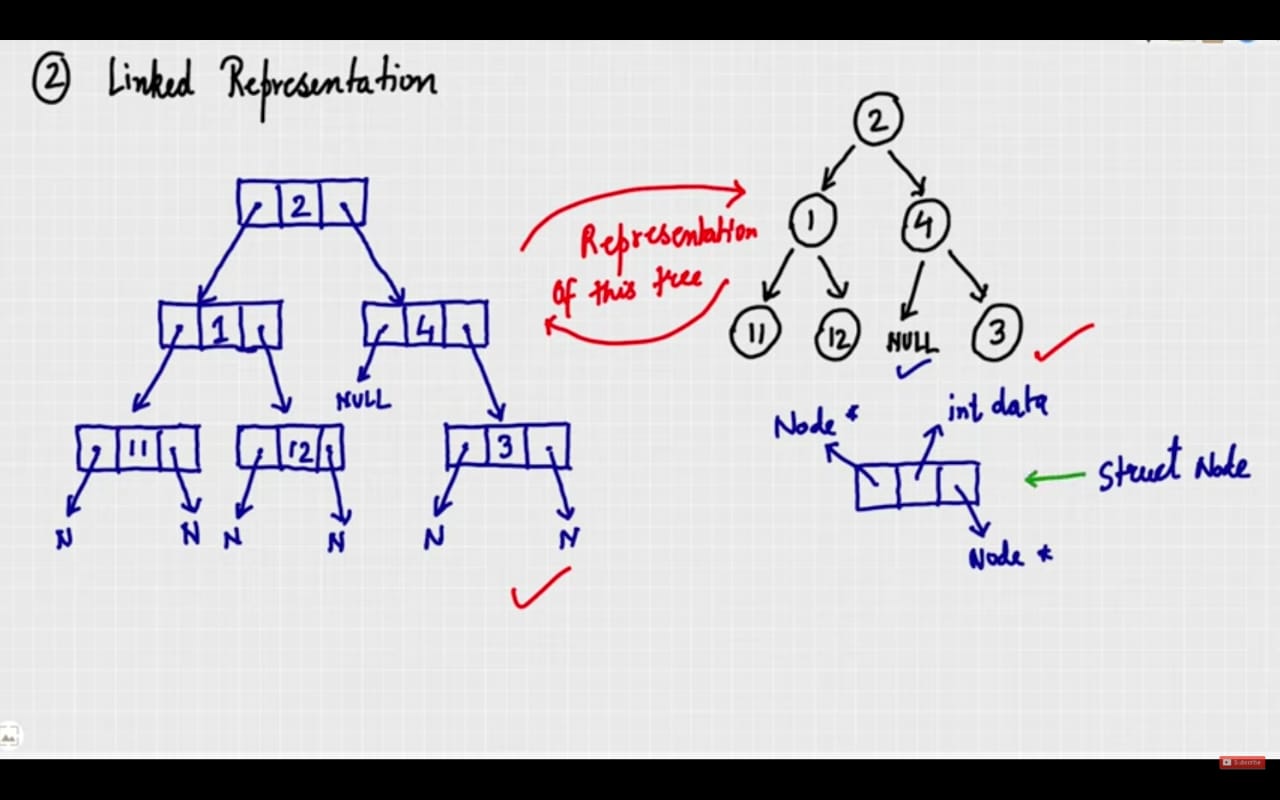 ② Linked Representation
2
1
4
NULL
11
12
3
N
N
N
N
N
N
Representation
Of this tree
2
1
4
11
12
NULL
3
Node *
int data
Struct Node
Node *
Subscribe